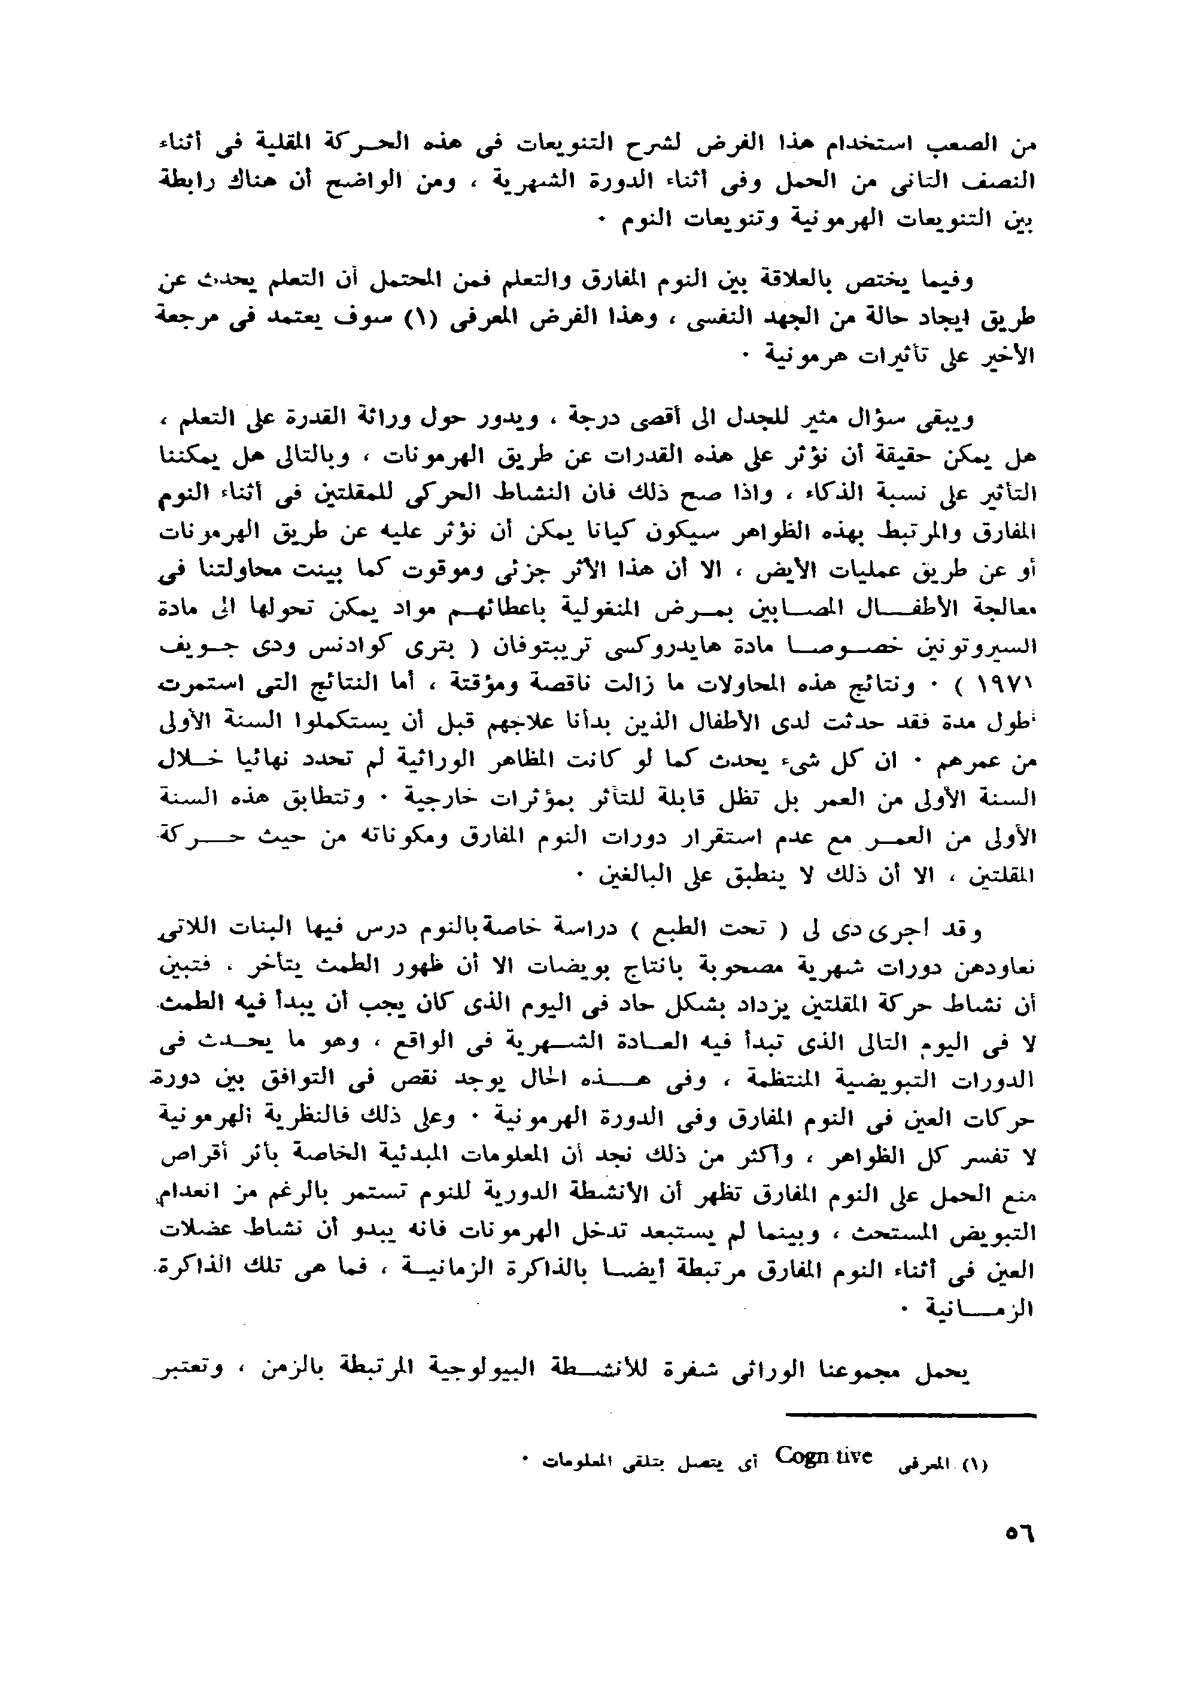 من الصعب استخدام هذا الفرض لشرح التنويعات فى هذه الحركة المقلية فى أثناء
النصف الثانى من الحمل وفى أثناء الدورة الشهرية ، ومن الواضح أن هناك رابطة
بين التنويعات الهرمونية وتنويعات النوم ٠
وفيما يختص بالعلاقة بين النوم المفارق والتعلم فمن المحتمل أن التعلم يحدث عن
طريق ايجاد حالة من الجهد النفسى ، وهذا الفرض المعرفى (١) سوف يعتمد فى مرجعة
الأخير على تأثيرات هرمونية ٠
ويبقى سؤال مثير للجدل الى أقصى درجة ، ويدور حول وراثة القدرة على التعلم ،
هل يمكن حقيقة أن نؤثر على هذه القدرات عن طريق الهرمونات ، وبالتالى هل يمكننا
التأثير على نسبة الذكاء ، واذا صح ذلك فان النشاط الحركى للمقلتين فى أثناء النوم
المفارق والمرتبط بهذه الظواهر سيكون كيانا يمكن أن نؤثر عليه عن طريق الهرمونات
أو عن طريق عمليات الأيض ، الا أن هذا الأثر جزئى وموقوت كما بينت محاولتنا فى
معالجة الأطفال المصابين بمرض المنغولية باعطائهم مواد يمكن تحولها الى مادة
السيروتونين خصوصا مادة هايدروكسى تريبتوفان ( بترى كوادنس ودى جويف
١٩٧١ ) ٠ ونتائج هذه المحاولات ما زالت ناقصة ومؤقتة ، أما النتائج التى استمرت
أطول مدة فقد حدثت لدى الأطفال الذين بدأنا علاجهم قبل أن يستكملوا السنة الأولى
من عمرهم ٠ ان كل شىء يحدث كما لو كانت المظاهر الوراثية لم تحدد نهائيا خلال
السنة الأولى من العمر بل تظل قابلة للتأثر بمؤثرات خارجية ٠ وتتطابق هذه السنة
الأولى من العمر مع عدم استقرار دورات النوم المفارق ومكوناته من حيث حركة
المقلتين ، الا أن ذلك لا ينطبق على البالغين ٠
وقد اجرى دى لى ( تحت الطبع ) دراسة خاصة بالنوم درس فيها البنات اللاتى
تعاودهن دورات شهرية مصحوبة بانتاج بويضات الا أن ظهور الطمث يتأخر ، فتبين
أن نشاط حركة المقلتين يزداد بشكل حاد فى اليوم الذى كان يجب أن يبدأ فيه الطمث
لا فى اليوم التالى الذى تبدأ فيه العادة الشهرية فى الواقع ، وهو ما يحدث فى
الدورات التبويضية المنتظمة ، وفى هذه الحال يوجد نقص فى التوافق بين دورة
حركات العين فى النوم المفارق وفى الدورة الهرمونية ٠ وعلى ذلك فالنظرية الهرمونية
لا تفسر كل الظواهر ، وأكثر من ذلك نجد أن المعلومات المبدئية الخاصة بأثر أقراص
منع الحمل على النوم المفارق تظهر أن الأنشطة الدورية للنوم تستمر بالرغم من انعدام
التبويض المستحث ، وبينما لم يستبعد تدخل الهرمونات فانه يبدو أن نشاط عضلات
العين فى أثناء النوم المفارق مرتبطة أيضا بالذاكرة الزمانية ، فما هى تلك الذاكرة
الزمانية ٠
يحمل مجموعنا الوراثى شفرة للأنشطة البيولوجية المرتبطة بالزمن ، وتعتبر
(١) المعرفى Cognitive أى يتصل بتلقى المعلومات ٠
٥٦